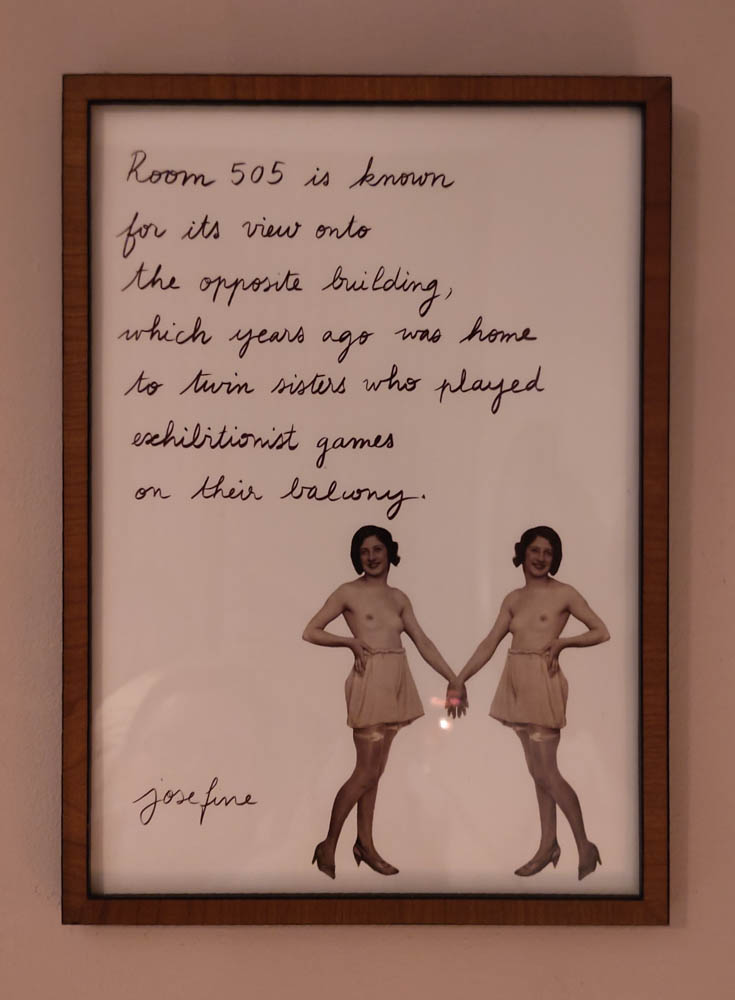 Room 505 is known
for its view onto
the opposite building,
which years ago was home
to twin sisters who played
exhibitionist games
on their balcony.
josefine